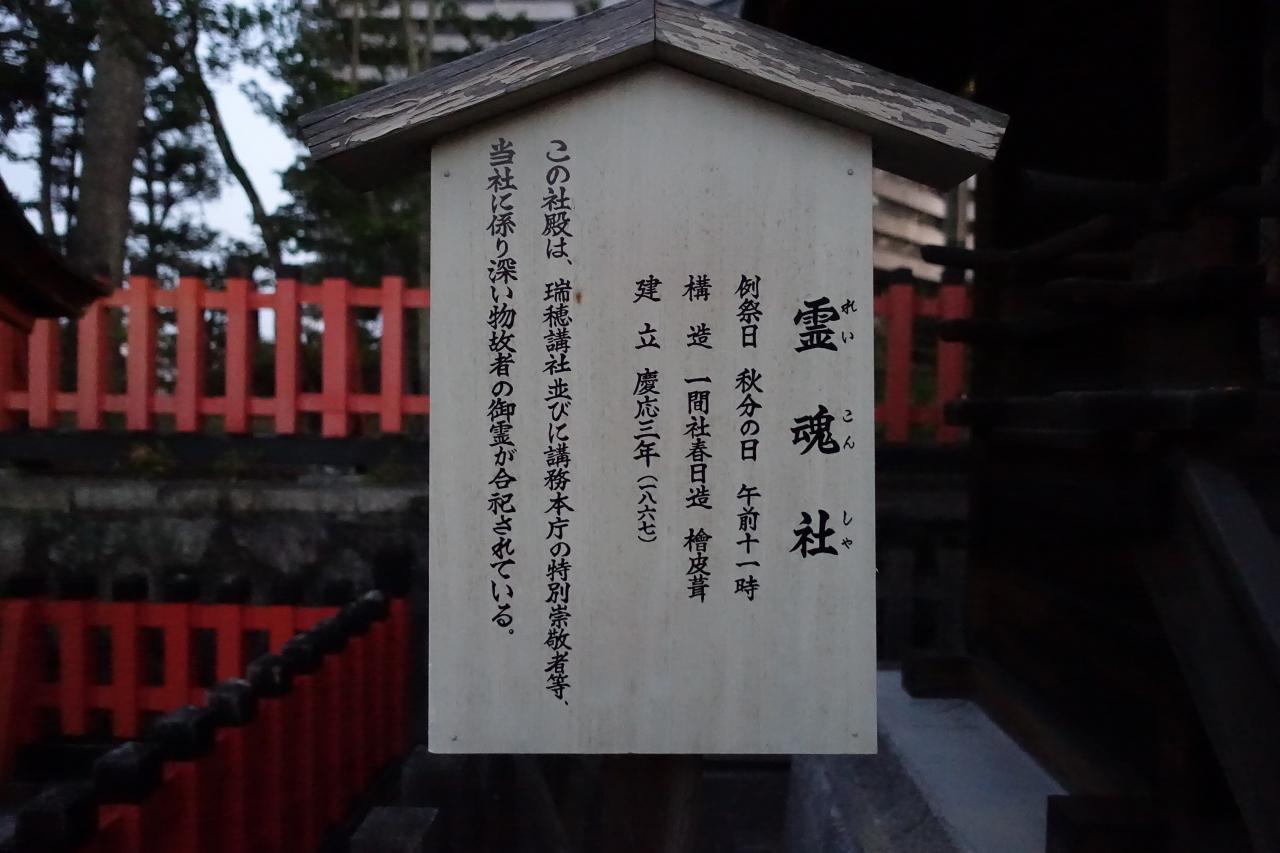 霊魂社
れいこんしゃ
例祭日 秋分の日 午前十一時
構造 一間社春日造 檜皮葺
建立 慶応三年(一八六七)
この社殿は、瑞穂講社並びに講務本庁の特別崇敬者等、
当社に係り深い物故者の御霊が合祀されている。